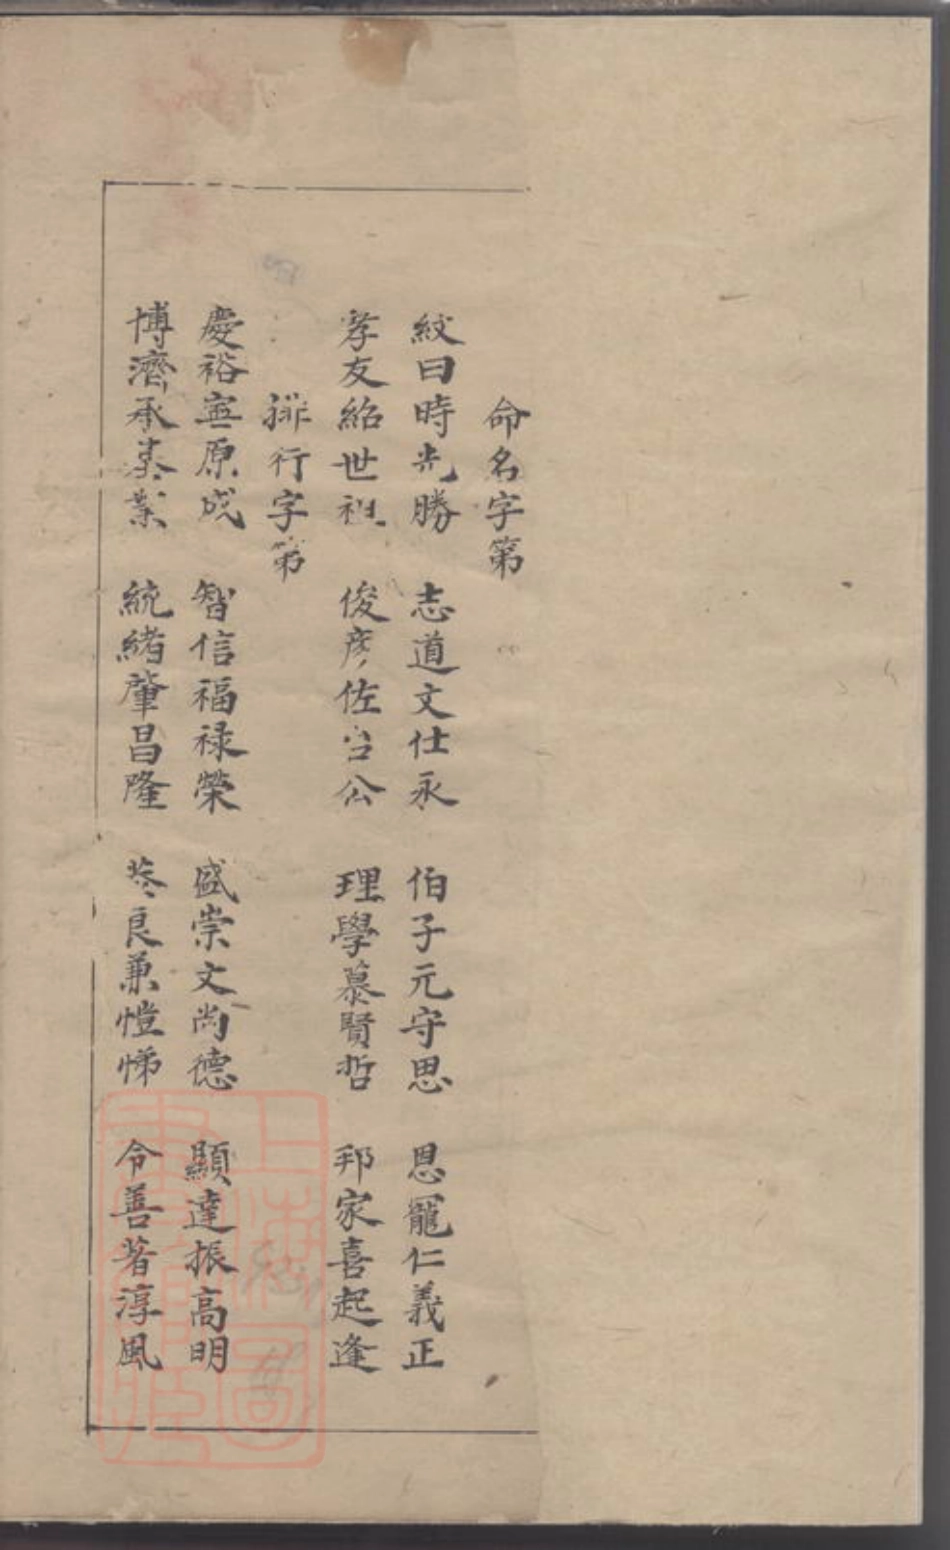 命名字第
紋曰時光勝 志道文仕永 伯子元守思 恩寵仁義正
孝友紹世祖 俊彥佐公 理學慕賢哲 邦家喜起逢
排行字第
慶裕寔原成 智信福禄榮 盛崇文尚德 顯達振高明
博濟承基業 統緒肇昌隆 良兼愷悌 令善著淳風